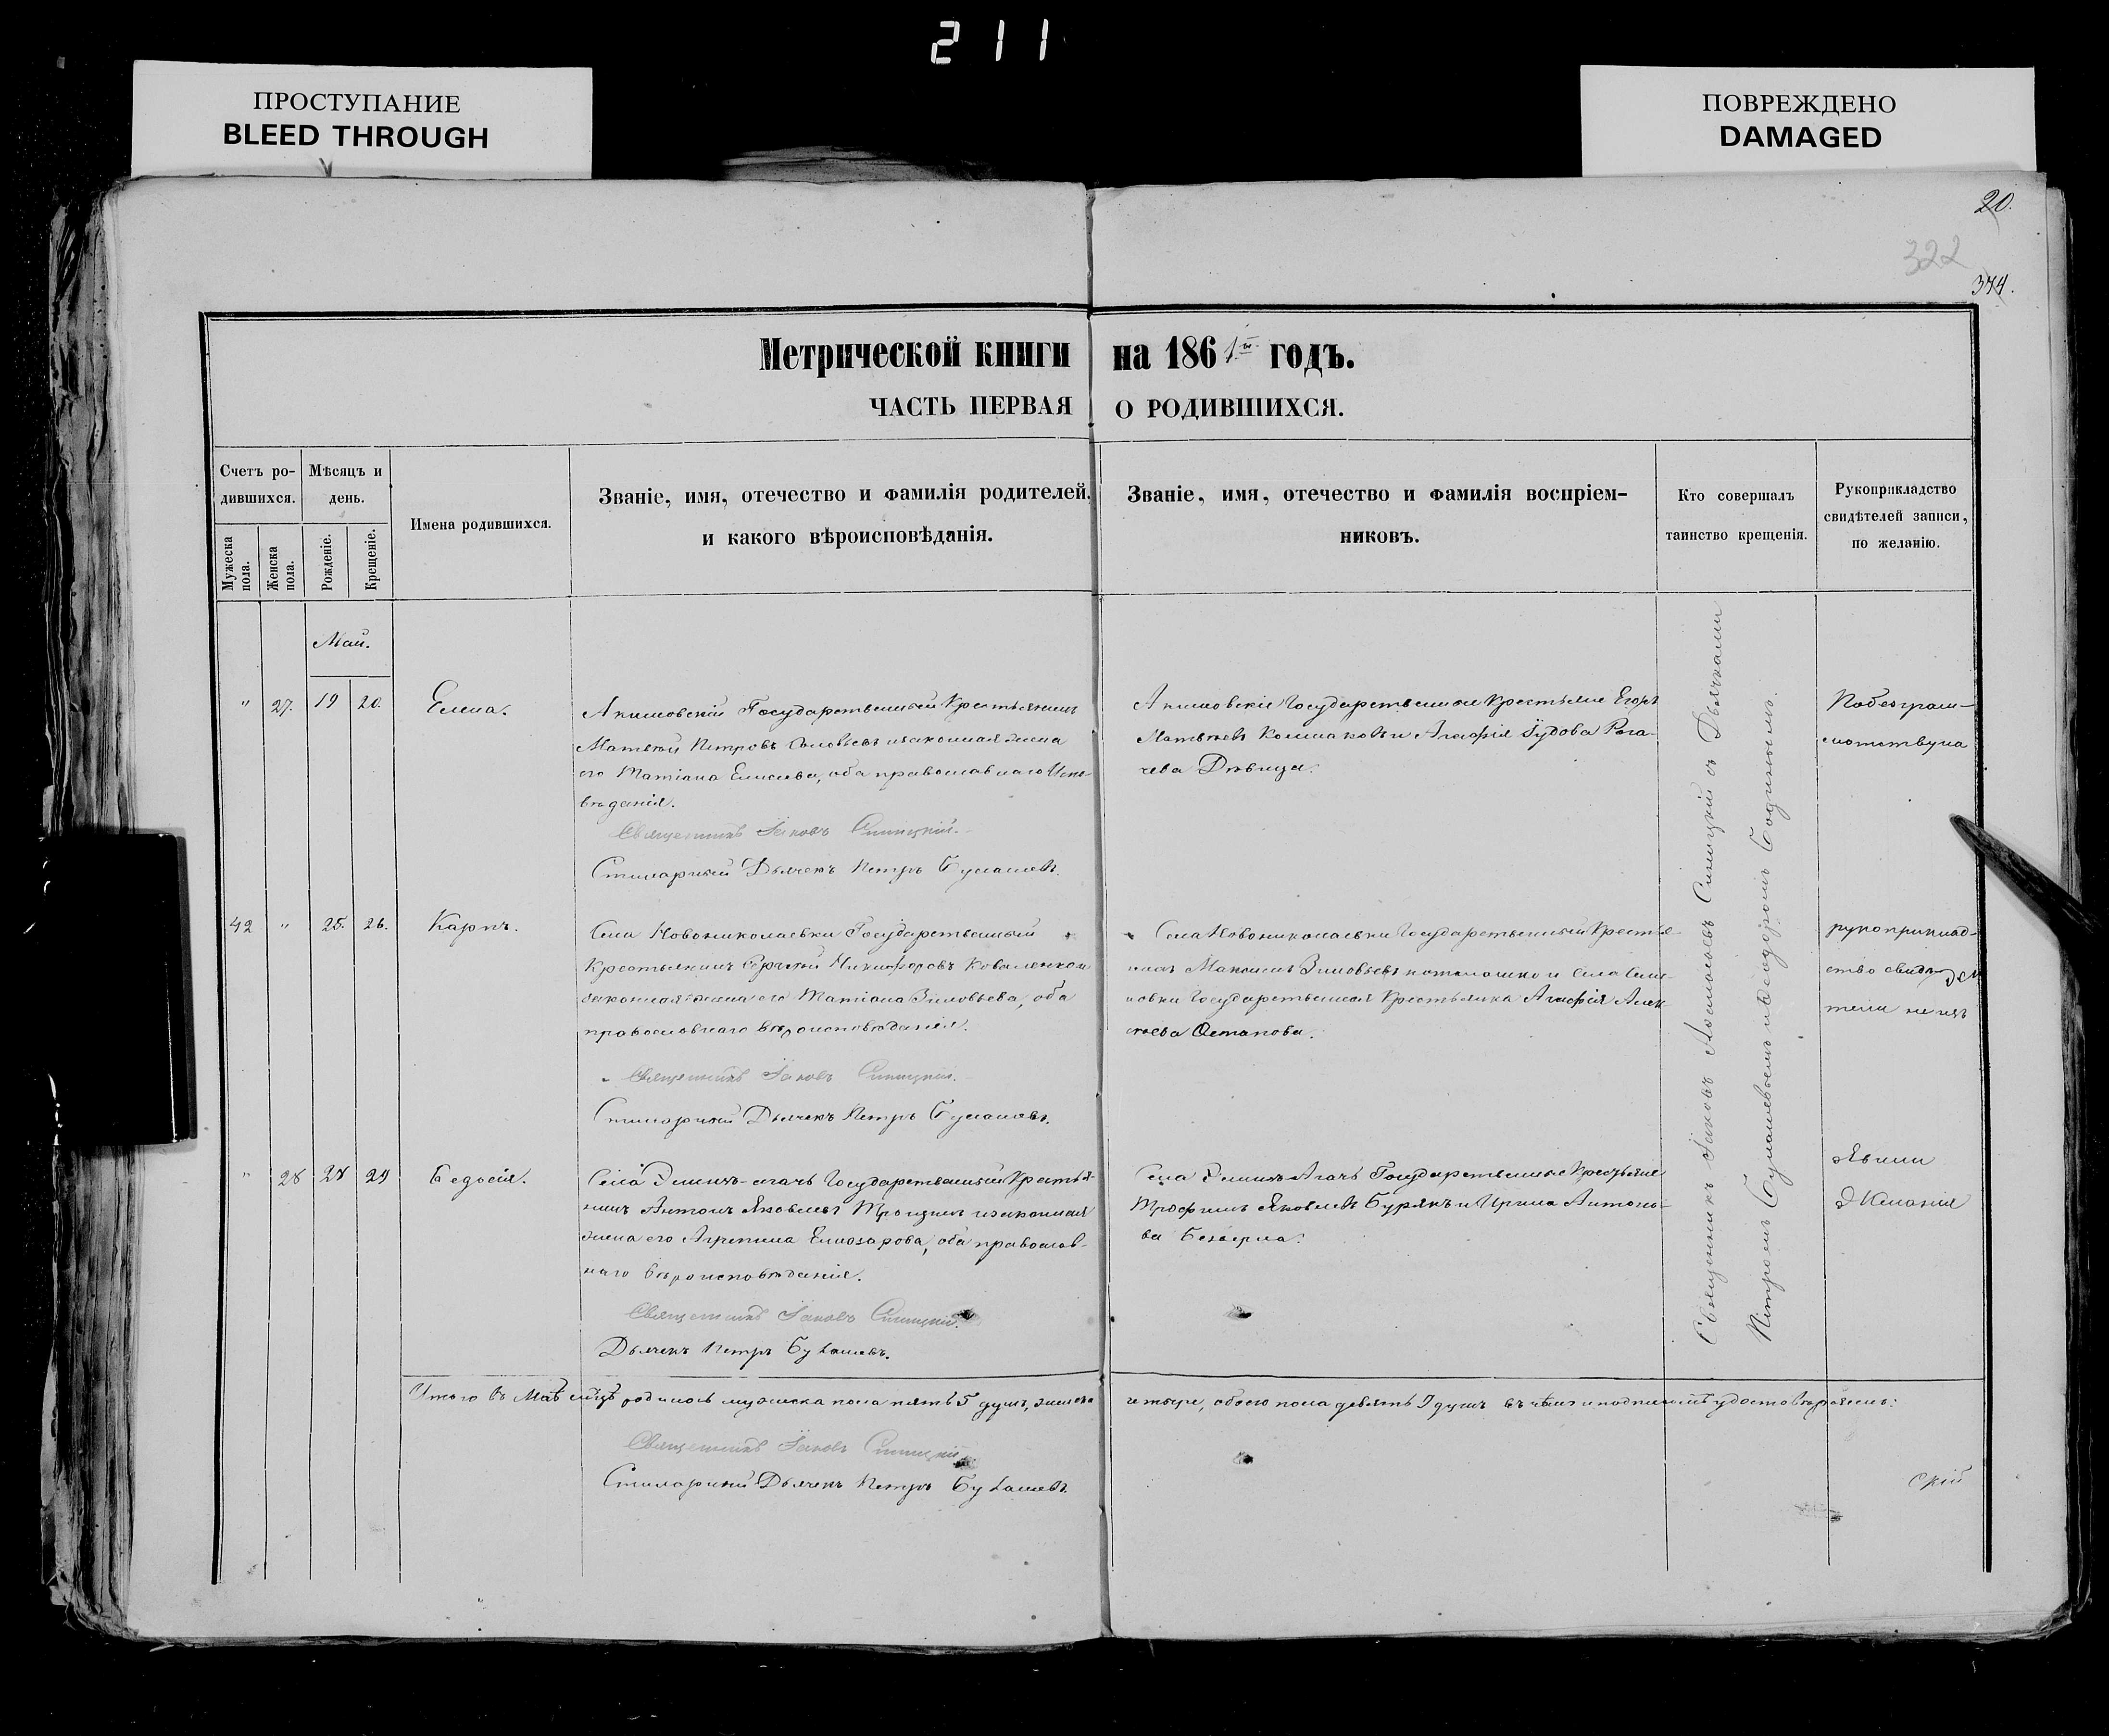 211
ПРОСТУПАНИЕ
BLEED THROUGH
ПОВРЕЖДЕНО
DAMAGED
20.
322
374.
Метрической книги на 1861й годъ.
ЧАСТЬ ПЕРВАЯ О РОДИВШИХСЯ.
Счетъ ро-
дившихся.
Мужеска пола.
Женска пола.
Мѣсяцъ и
день.
Рожденіе.
Крещеніе.
Имена родившихся.
Званіе, имя, отечество и фамилія родителей,
и какого вѣроисповѣданія.
Званіе, имя, отечество и фамилія воспріем-
никовъ.
Кто совершалъ
таинство крещенія.
Рукоприкладство
свидѣтелей записи,
по желанію.
Май.
" 27. 19 20. Елена.
Акимовскій Государственный Крестьянинъ
Матвѣй Петровъ Соловьевъ и законная жена
его Татіана Елисеева, оба православнаго Испо-
вѣданія.
Священникъ Іаковъ Синицкій.
Стихарный Дьячекъ Петръ
Акимовскіе Государственные Крестьяне Егоръ
Матвѣевъ и Агафія Рога-
чева Дѣвица.
По безграм-
мотству на
42 " 25. 26. Карпъ.
Села Новониколаевки Государственный
Крестьянинъ Сергѣй Никифоровъ Коваленко и
законная жена его Татіана Зиновьева, оба
православнаго вѣроисповѣданія.
Священникъ Іаковъ Синицкій.
Стихарный Дьячекъ Петръ
Села Новониколаевки Государственный Крестья-
нинъ Максимъ Зиновьевъ и села
Государственная Крестьянка Агафія Алек
сѣева Остапова.
рукоприклад-
ство свидѣ-
тели не изъ
" 28 28 29 Ѳедосія.
Села Государственный Крестья-
нинъ Антонъ Яковлевъ и законная
жена его Агрепина Елиозарова, оба православ-
наго вѣроисповѣданія.
Священникъ Іаковъ Синицкій.
Дьячекъ Петръ
Села Государственные Крестьяне
Трофимъ Яковлевъ Бурякъ и Ирина Антоно-
ва
явили
желанія
Священникъ Іаковъ Синицкій съ Дьячками
Петромъ и Ѳеодоромъ
Итого въ Маѣ м-цѣ родилось мужеска пола пять 5 душъ, женска
четыре, обоего пола девять 9 душъ въ чемъ и подписомъ удостовѣряемъ:
Священникъ Іаковъ Синицкій.
Стихарный Дьячекъ Петръ
скій